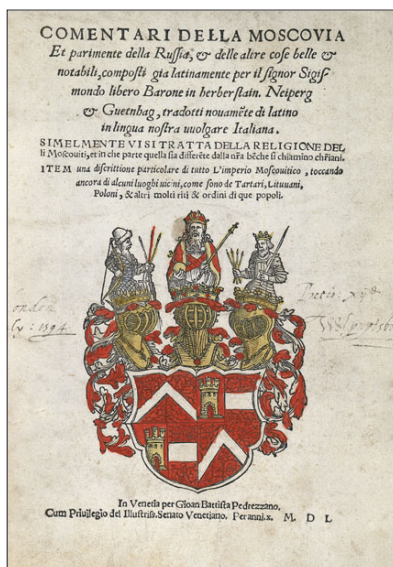 COMENTARI DELLA MOSCOVIA
Et parimente della Russia, & delle altre cose belle &
notabili, composti gia latinamente per il signor Sigis
mondo libero Barone in herberstain. Neiperg
& Guetnhag, tradotti novamẽte di latino
in lingua nostra vuolgare Italiana.
SIMELMENTE VI SI TRATTA DELLA RELIGIONE DEL
li Moscouiti, et in che parte quella sia differẽte dalla nr̃a bẽche si chiamino chr̃iani.
ITEM una discrittione particulare di tutto L'imperio Moscouitico, toccando
ancora di alcuni luoghi uicini, come sono de Tartari, Lituuani,
Poloni, & altri molti riti & ordini di que popoli.
ondon
: 1594.
In Venetia per Gioan Battista Pedrezzano.
Cum Priuilegio del Illustriss. Senato Venetiano. Per anni. x. M. D L